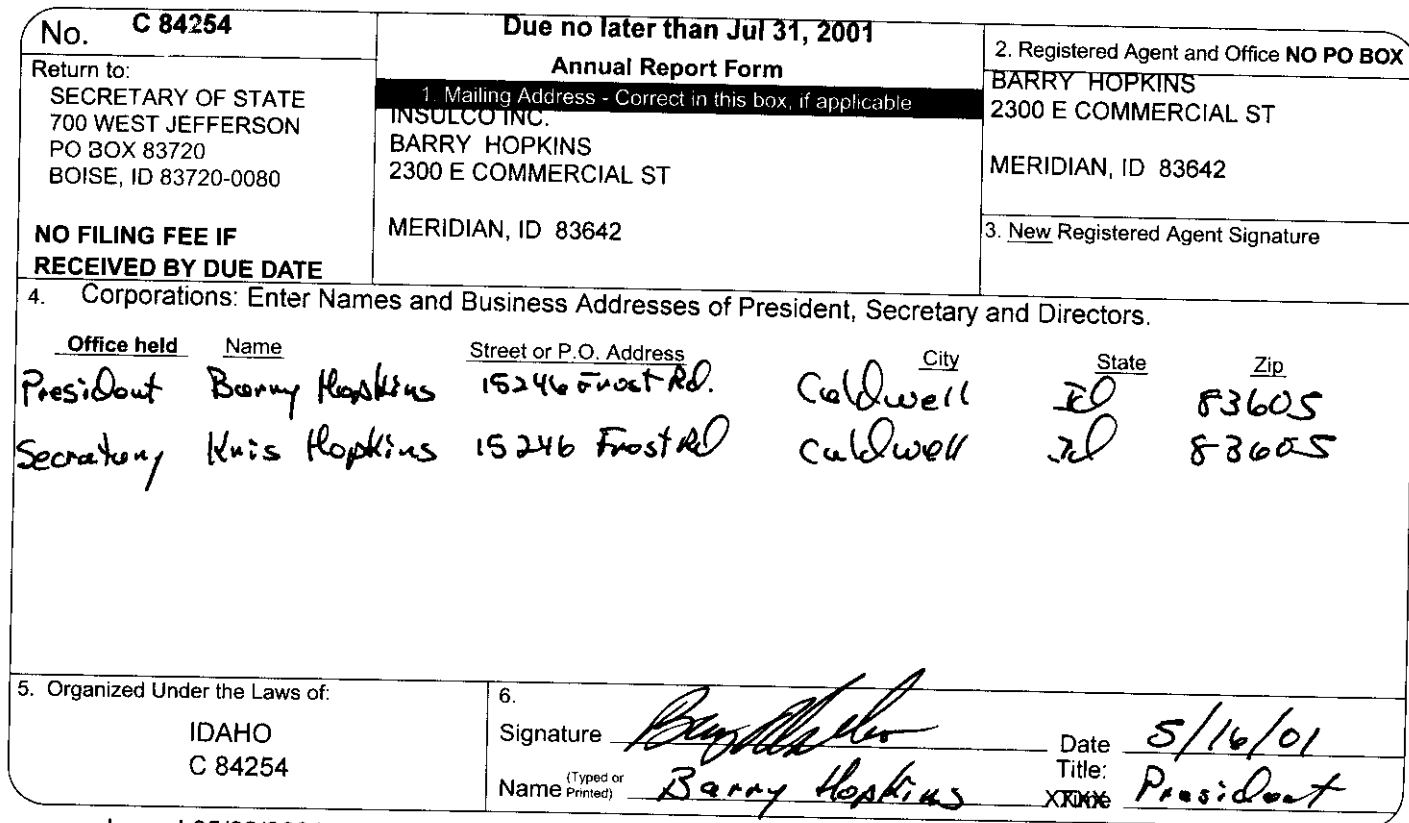 No. C 84254
Return to:
SECRETARY OF STATE
700 WEST JEFFERSON
PO BOX 83720
BOISE, ID 83720-0080
NO FILING FEE IF
RECEIVED BY DUE DATE
Due no later than Jul 31, 2001
Annual Report Form
1. Mailing Address - Correct in this box, if applicable
INSULCO INC.
BARRY HOPKINS
2300 E COMMERCIAL ST
MERIDIAN, ID 83642
2. Registered Agent and Office NO PO BOX
BARRY HOPKINS
2300 E COMMERCIAL ST
MERIDIAN, ID 83642
3. New Registered Agent Signature
4. Corporations: Enter Names and Business Addresses of President, Secretary and Directors.
Office held Name Street or P.O. Address City State Zip
President Barry Hopkins 15246 Frost Rd. Caldwell Id 83605
Secretary Kris Hopkins 15246 Frost Rd Caldwell Id 83605
5. Organized Under the Laws of:
IDAHO
C 84254
6.
Signature Date 5/16/01
Name (Typed or Printed) Barry Hopkins Title: President